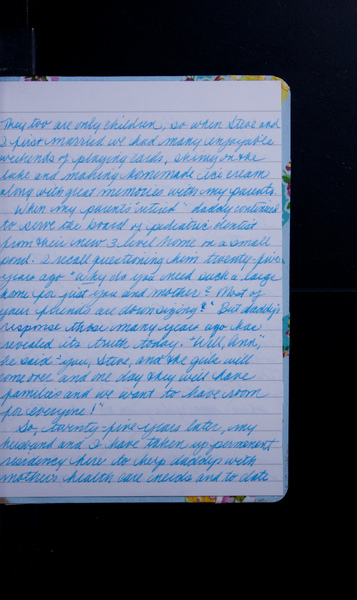 They too are only children, so when Steve and
I first married we had many enjoyable
weekends of playing cards, skiing on the
lake and making homemade ice cream
along with great memories with my parents.
When my parents "retired" daddy continued
to serve the board of pediatric dentist
from their new 3 level home on a small
pond. I recall questioning him twenty-five
years ago "Why do you need such a large
home for just you and mother? Most of
your friends are downsizing?" But daddy's
response those many years ago has
revealed its truth today. "Well, Ann,"
he said "you, Steve, and the girls will
come over and one day they will have
families and we want to have room
for everyone!"
So, twenty-five years later, my
husband and I have taken up permanent
residency here to help daddy with
mother's health care needs and to date